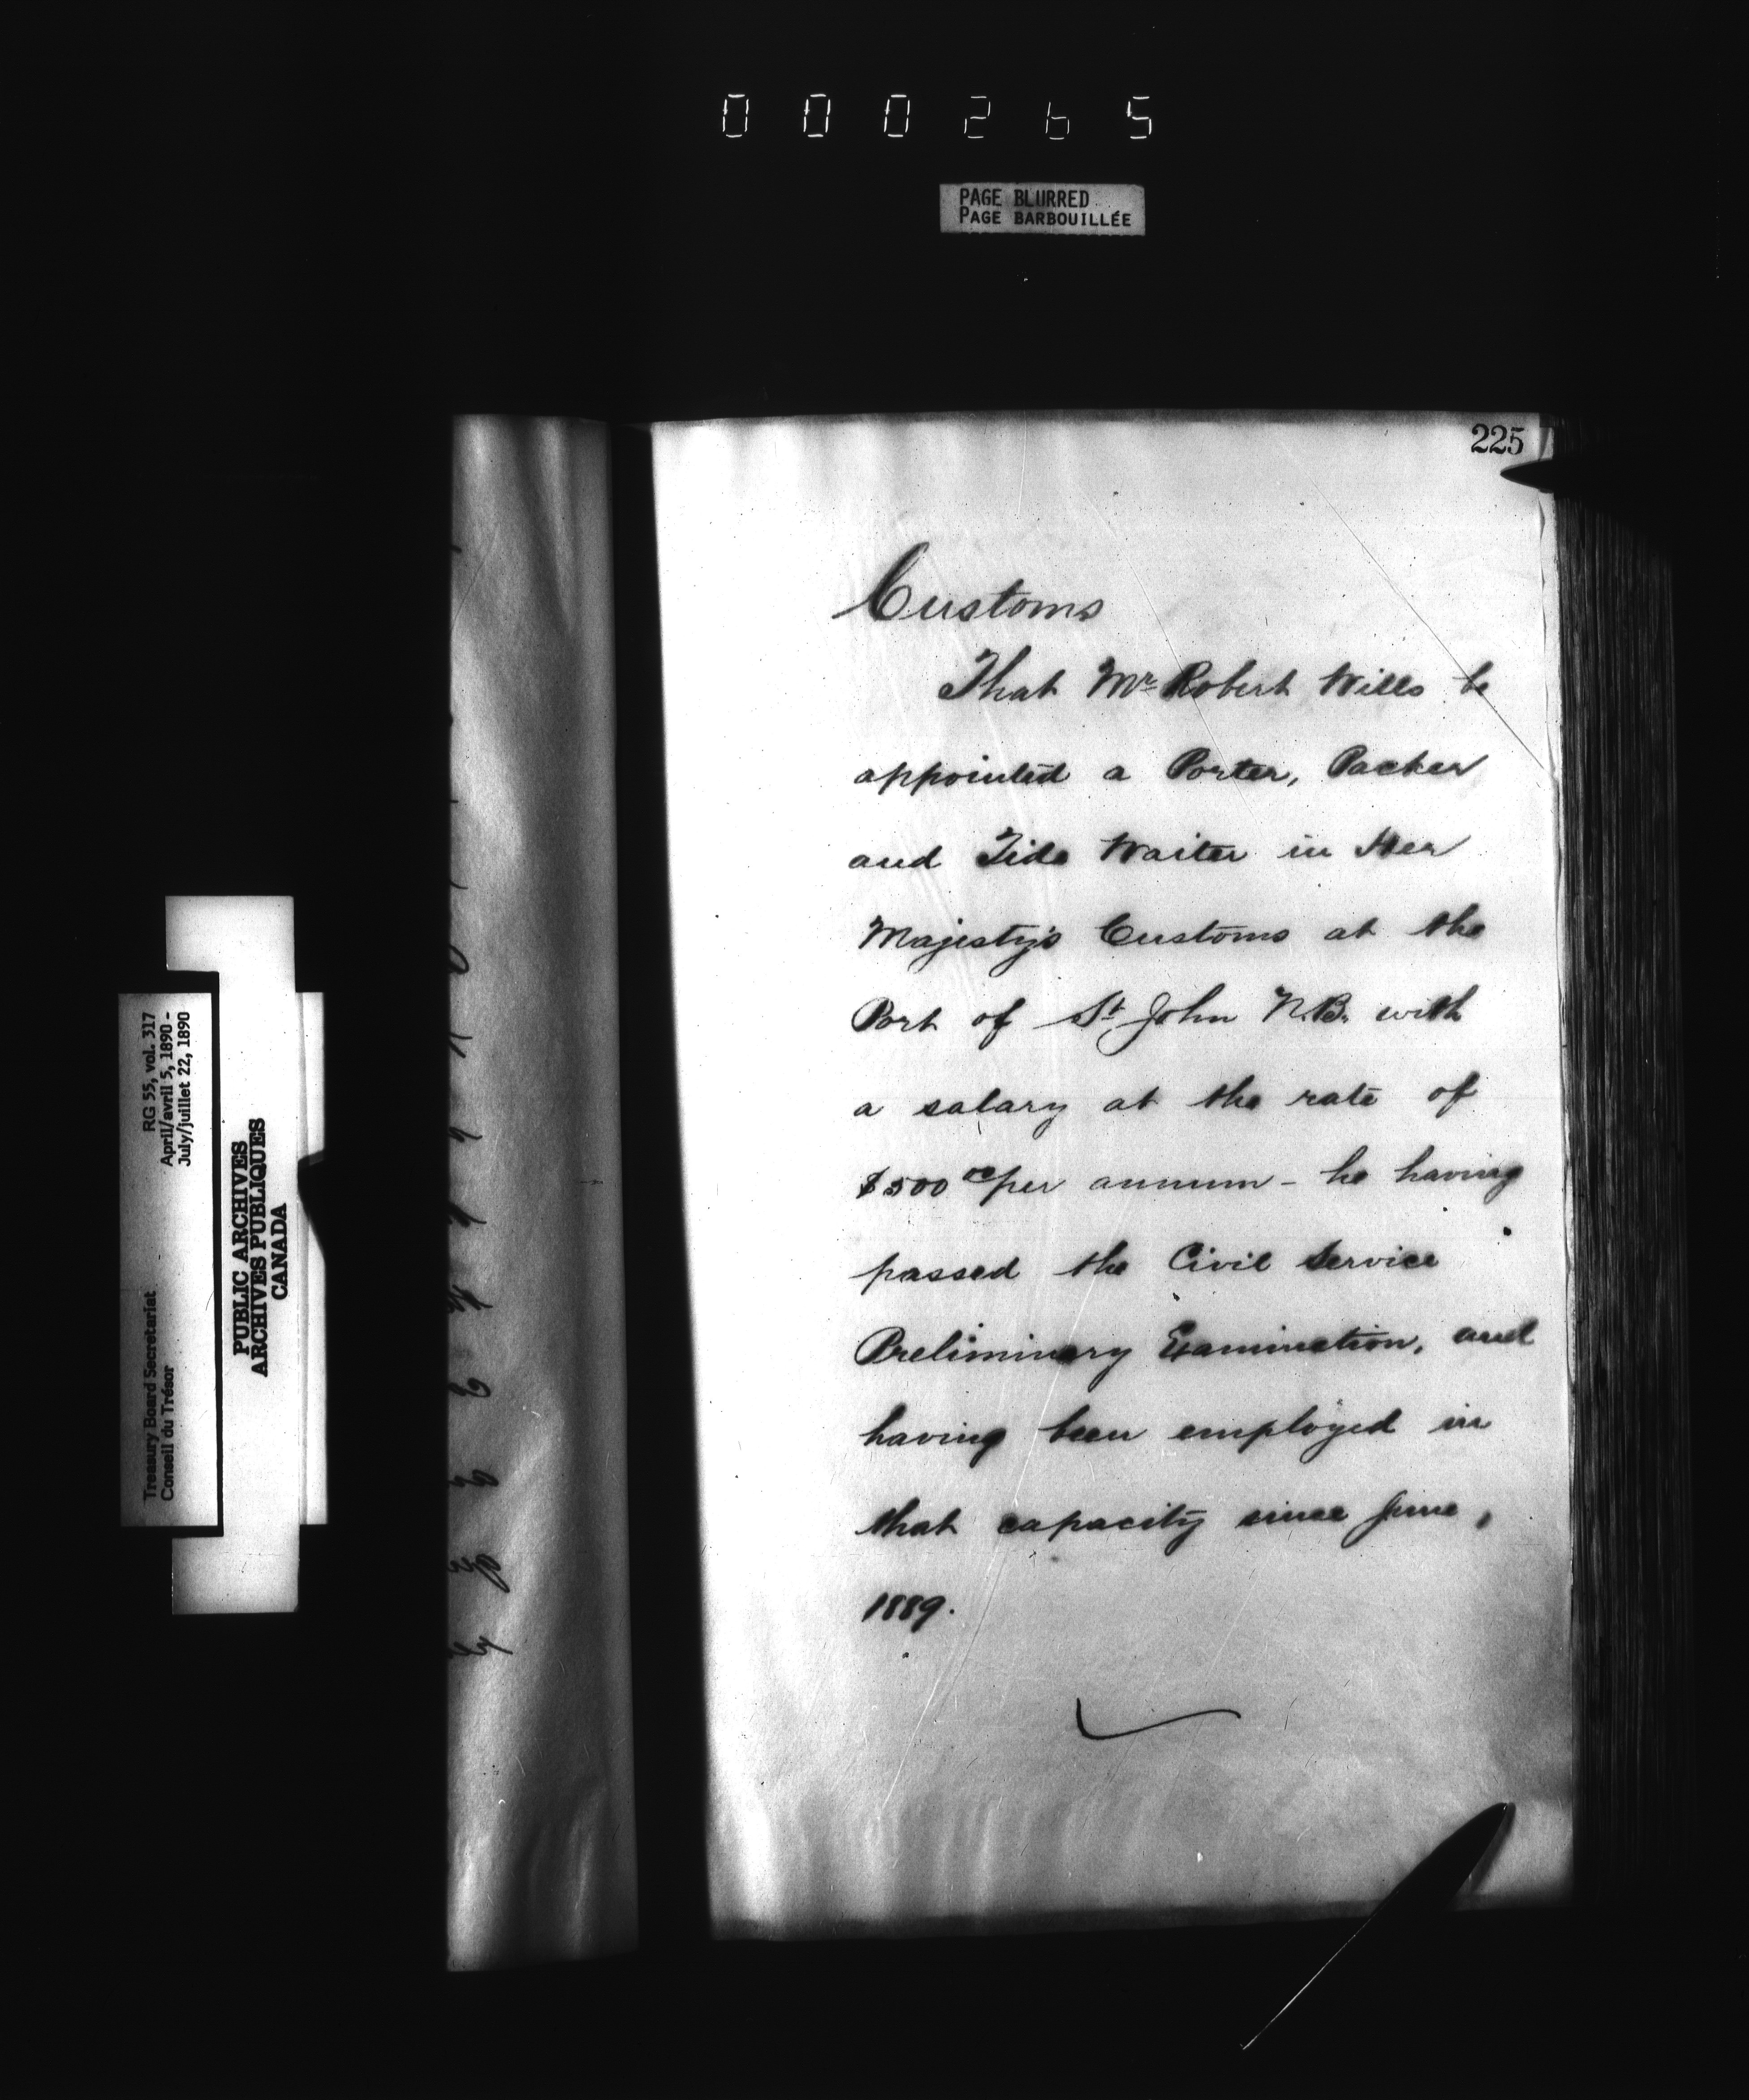 000265
PAGE BLURRED
PAGE BARBOUILLÉE
225
Customs
That Mr. Robert Wills be
appointed a Porter, Packer
and Tide Waiter in Her
Majesty's Customs at the
Port of St John N.B. with
a salary at the rate of
$500 00 per annum - he having
passed the Civil Service
Preliminary Examination, and
having been employed in
that capacity since June,
1889.
RG 55, vol. 317
April/avril 5, 1890 -
July/juillet 22, 1890
Treasury Board Secretariat
Conseil du Trésor
PUBLIC ARCHIVES
ARCHIVES PUBLIQUES
CANADA